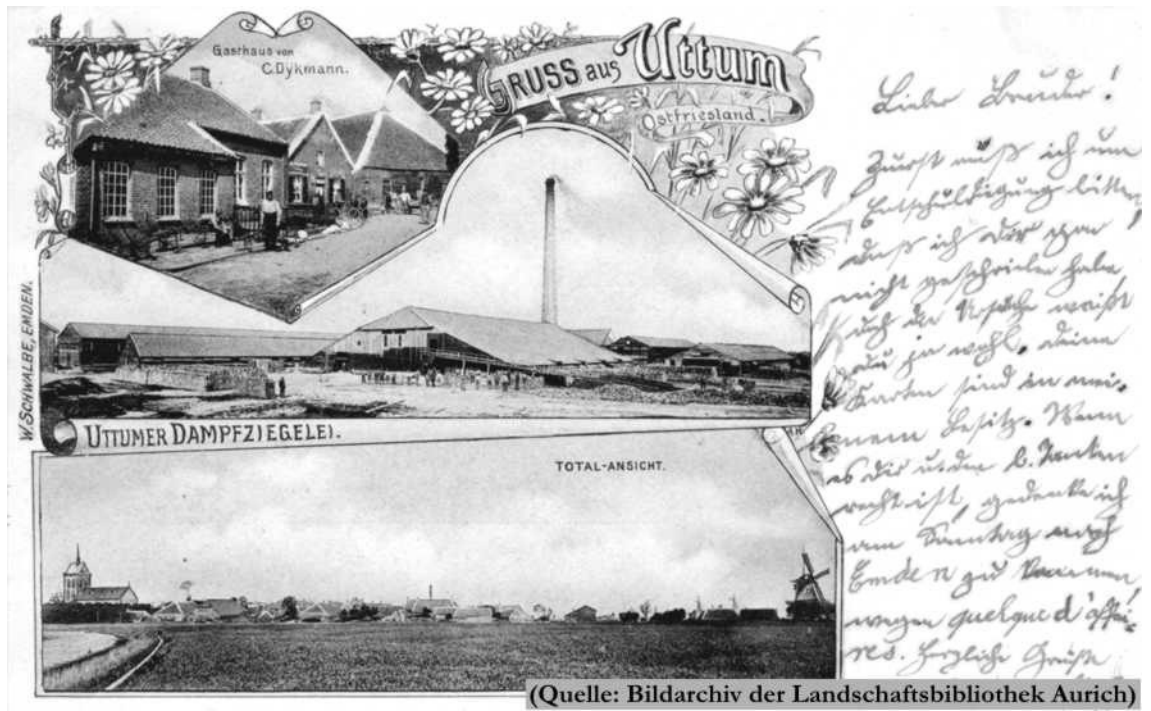 Gasthaus von
C. Dykmann.
GRUSS aus Uttum
Ostfriesland.
W. SCHWALBE, EMDEN.
UTTUMER DAMPFZIEGELEI.
TOTAL-ANSICHT.
Lieber Bruder!
Zuerst muß ich um
Entschuldigung bitten,
daß ich dir gar
nicht geschrieben habe,
die Ursache weißt
du ja wohl. Deine
Karten sind in mei-
nem Besitz. Wenn
es dir u. den l. Tanten
recht ist, gedenke ich
am Sonntag nach
Emden zu kommen,
wegen quelque d'affai-
res. Herzliche Grüße
(Quelle: Bildarchiv der Landschaftsbibliothek Aurich)